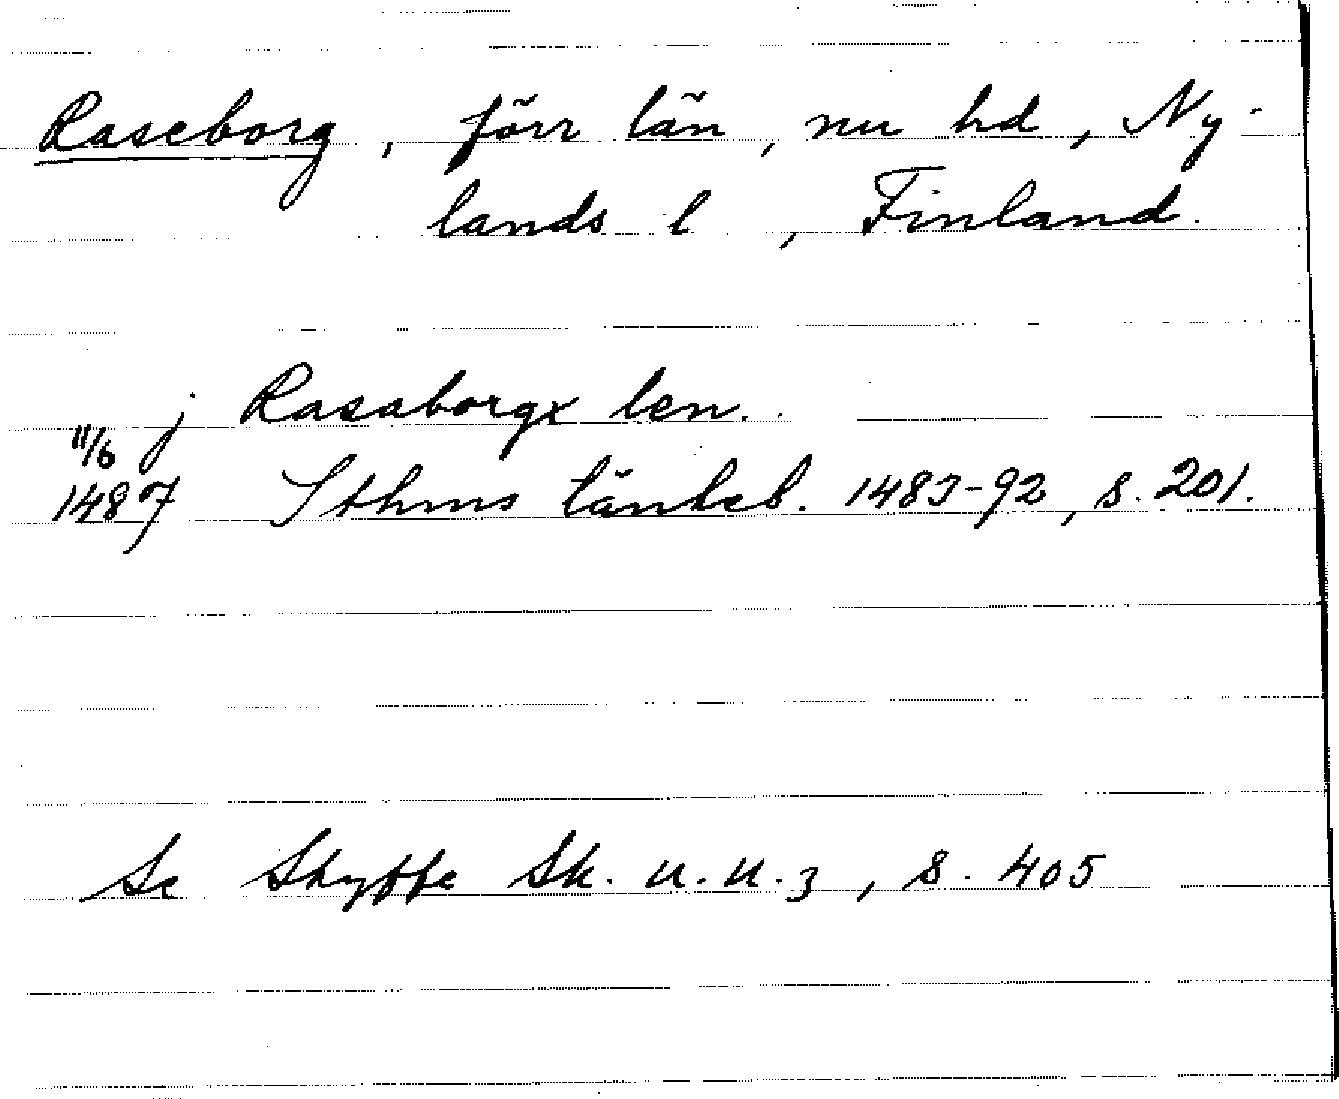 Raseborg, förr län, nu hd, Ny-
lands l, Finland.
j Rasaborgx len.
11/6
1487 Sthms tänkeb. 1483-92, s. 201.
Se Skyffe Sk. u.u.z, s. 405